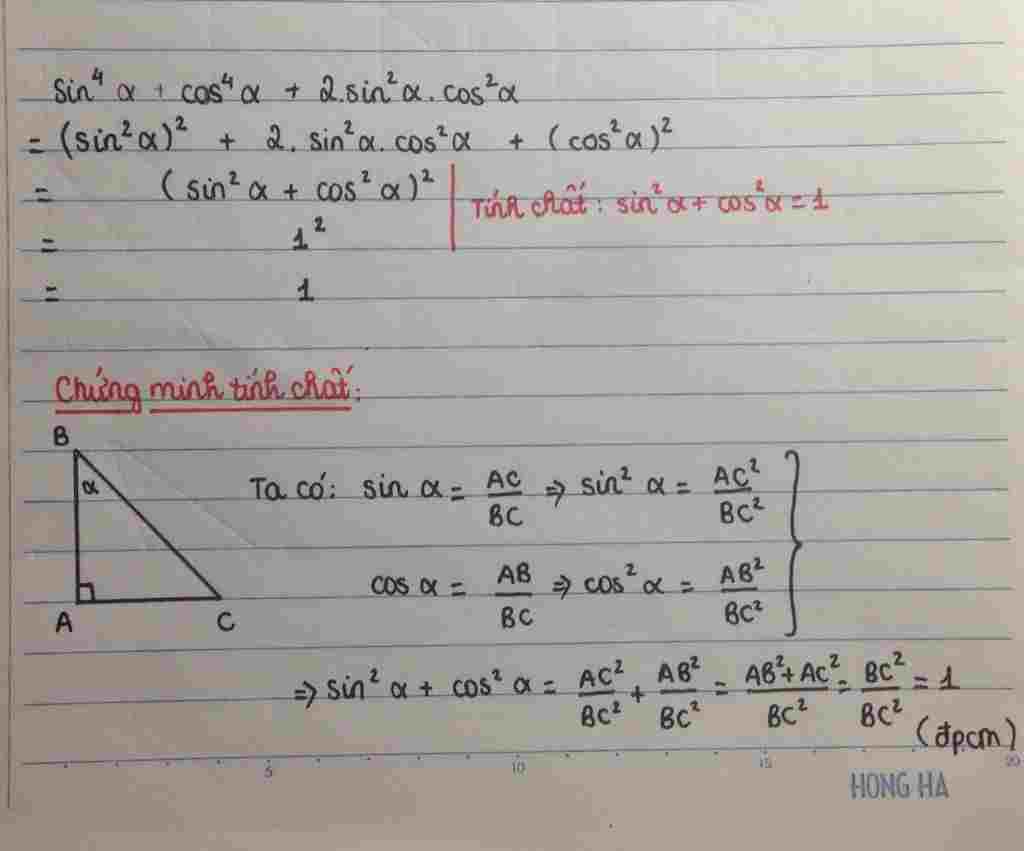 sin⁴ α + cos⁴ α + 2.sin² α. cos² α
= (sin² α)² + 2. sin² α. cos² α + (cos² α)²
= (sin² α + cos² α)² | Tính chất: sin² α + cos² α = 1
= 1²
= 1
Chứng minh tính chất:
B
α
A
C
Ta có: sin α = AC/BC ⇒ sin² α = AC²/BC²
cos α = AB/BC ⇒ cos² α = AB²/BC²
⇒ sin² α + cos² α = AC²/BC² + AB²/BC² = AB²+AC²/BC² = BC²/BC² = 1
(đpcm)
5 10 15 20
HONG HA